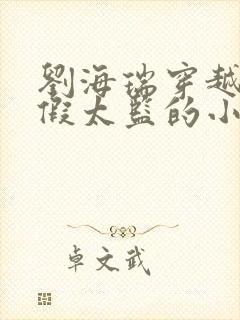 劉海瑞穿越
假太監的小
卓文武